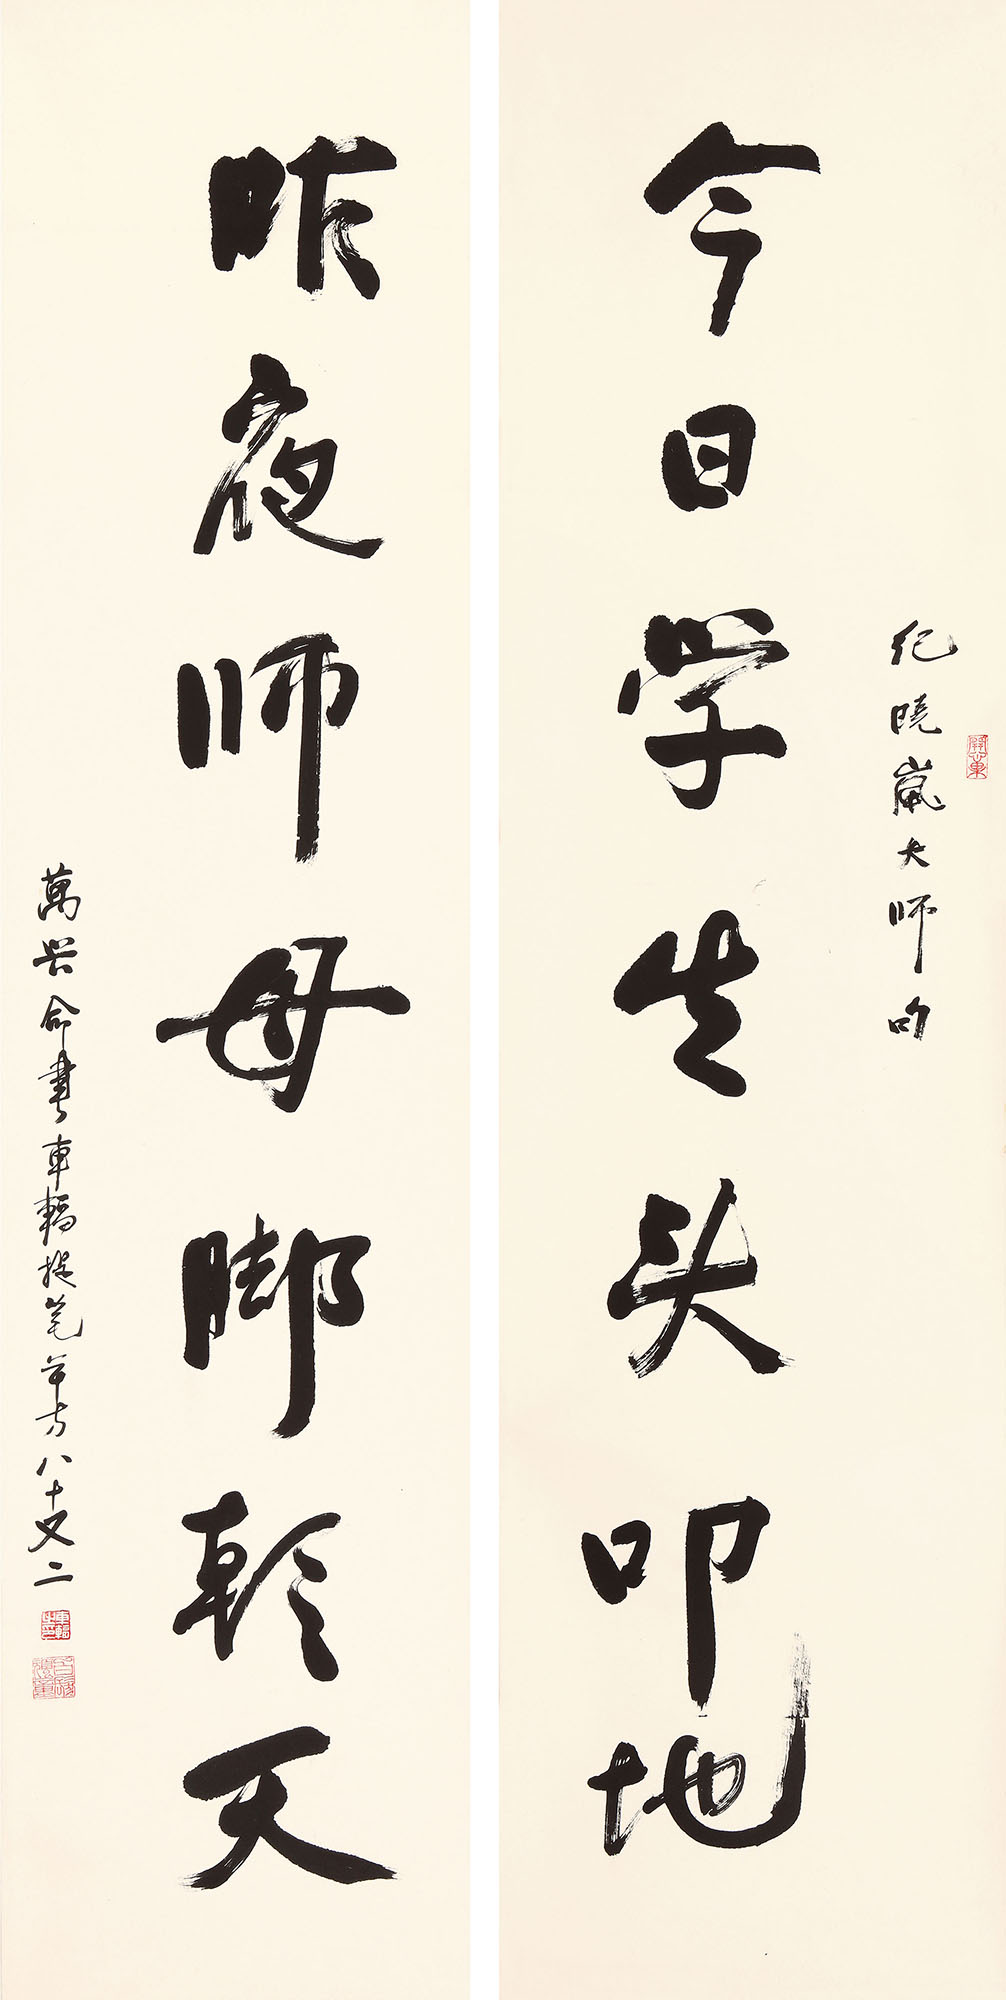 纪晓岚大师句
今日学生头叩地
昨夜师母脚朝天
萬興命書車輻捉笔年方八十又二
車輻